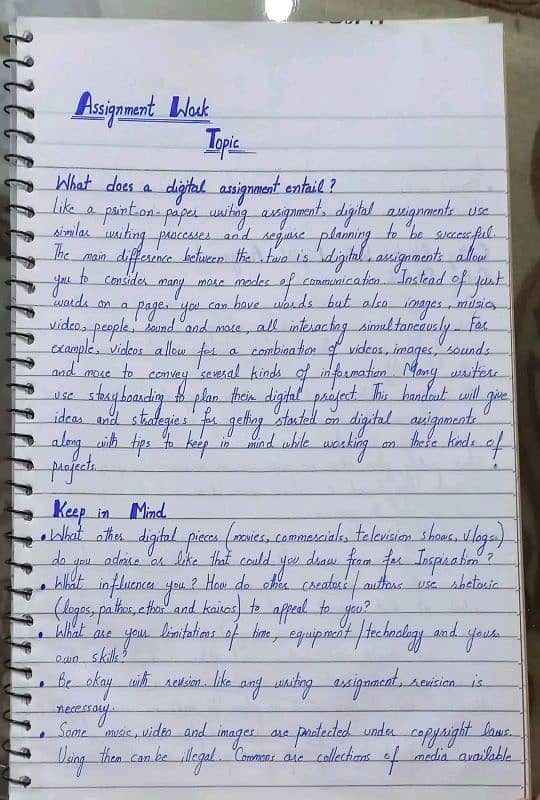 Assignment Work
Topic
What does a digital assignment entail?
Like a print-on-paper writing assignment, digital assignments use
similar writing processes and require planning to be successful.
The main difference between the two is digital assignments allow
you to consider many more modes of communication. Instead of just
words on a page, you can have words but also images, music,
video, people, sound and more, all interacting simultaneously. For
example, videos allow for a combination of videos, images, sounds
and more to convey several kinds of information. Many writers
use storyboarding to plan their digital project. This handout will give
ideas and strategies for getting started on digital assignments
along with tips to keep in mind while working on these kinds of
projects.
Keep in Mind
• What other digital pieces (movies, commercials, television shows, vlogs..)
do you admire or like that could you draw from for Inspiration?
• What influences you? How do other creators/authors use rhetoric
(logos, pathos, ethos and kairos) to appeal to you?
• What are your limitations of time, equipment/technology and your
own skills?
• Be okay with revision. like any writing assignment, revision is
necessary.
• Some music, video and images are protected under copyright laws.
Using them can be illegal. Commons are collections of media available